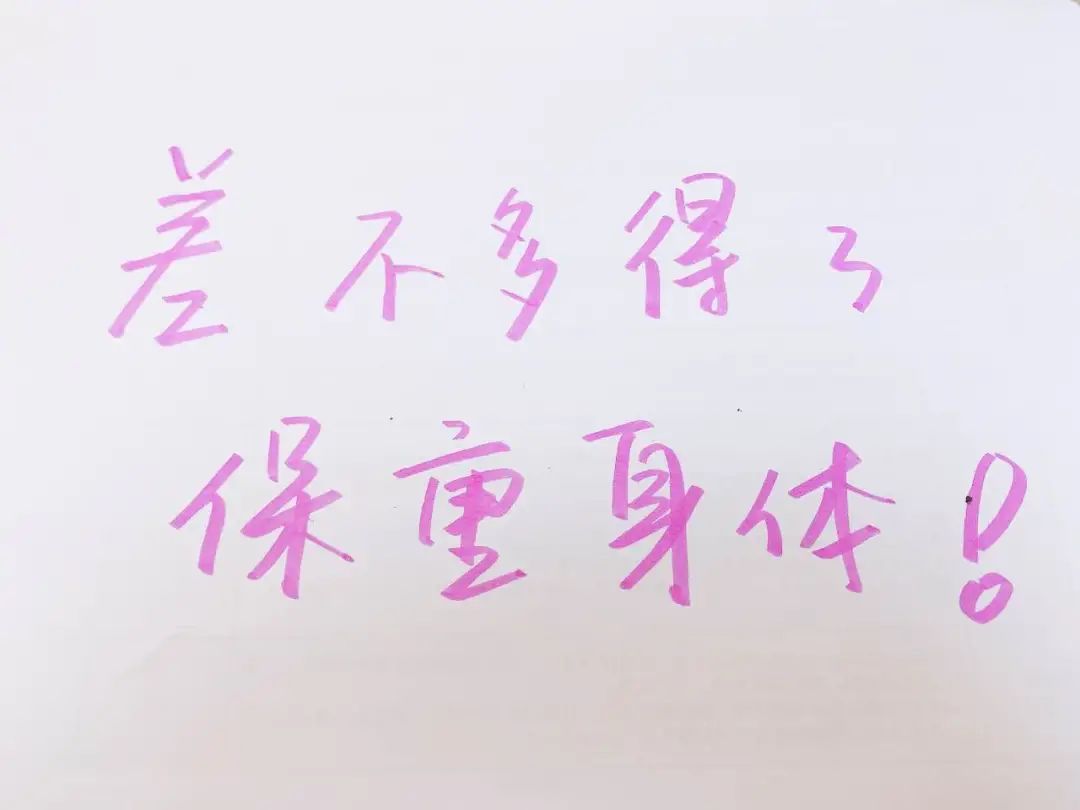 差不多得了
保重身体!